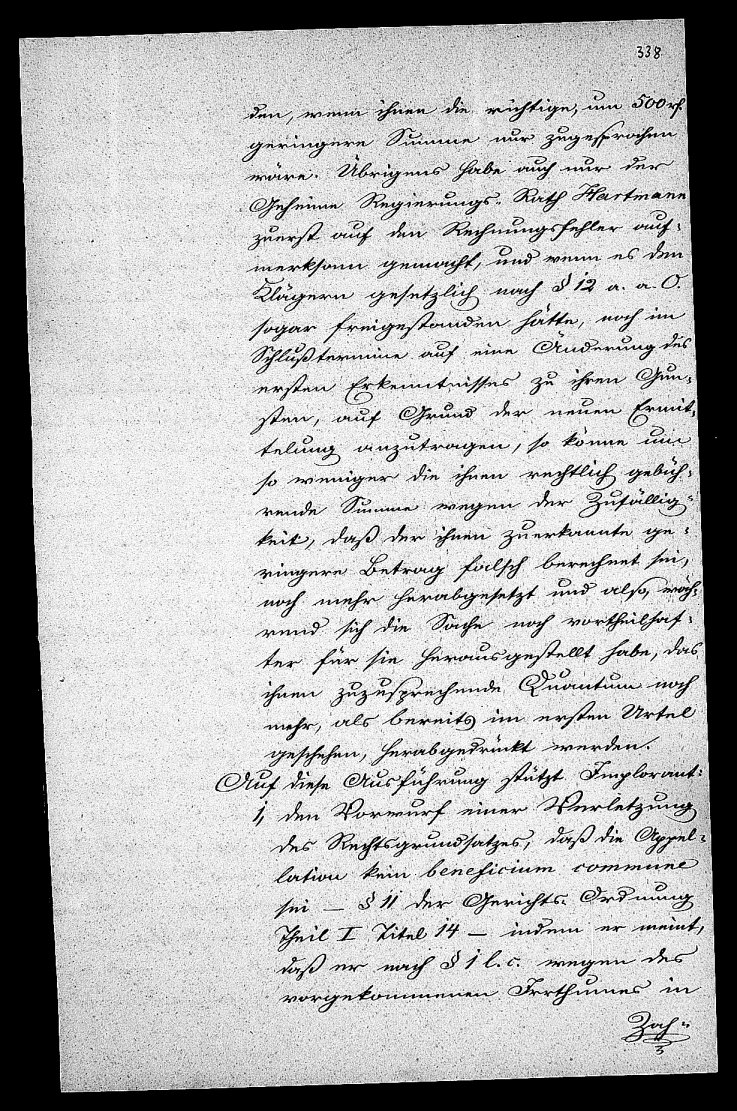 338
den, wenn ihnen die richtige, um 500 rf.
geringere Summe nur zugesprochen
wäre. Übrigens habe auch nur der
Geheime Regierungs-Rath Hartmann
zuerst auf den Rechnungsfehler auf-
merksam gemacht, und wenn es den
Klägern gesetzlich nach § 12 a. a. O.
sogar freigestanden hätte, noch im
Schlußtermine auf eine Änderung des
ersten Erkenntnisses zu ihren Gun-
sten, auf Grund der neuen Ermit-
telung anzutragen, so könne um
so weniger die ihnen rechtlich gebüh-
rende Summe wegen der Zufällig-
keit, daß der ihnen zuerkannte ge-
ringere Betrag falsch berechnet sei,
noch mehr herabgesetzt und also, wäh-
rend sich die Sache noch vortheilhaf-
ter für sie herausgestellt habe, das
ihnen zuzusprechende Quantum noch
mehr, als bereits im ersten Urtel
geschehen, herabgedrückt werden.
Auf diese Ausführung stützt Implorant:
1, den Vorwurf einer Verletzung
des Rechtsgrundsatzes, daß die Appel-
lation kein beneficium commune
sei — § 11 der Gerichts-Ordnung
Theil I Titel 14 — indem er meint,
daß er nach § 1 l. c. wegen des
vorgekommenen Irrthumes in
Zah-